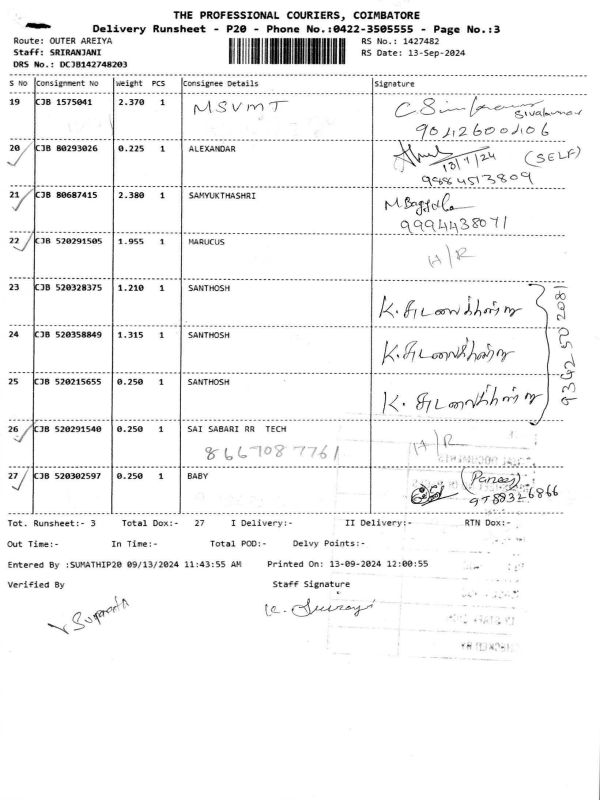 THE PROFESSIONAL COURIERS, COIMBATORE
Delivery Runsheet - P20 - Phone No.:0422-3505555 - Page No.:3
Route: OUTER AREIYA RS No.: 1427482
Staff: SRIRANJANI RS Date: 13-Sep-2024
DRS No.: DCJB142748203
S No Consignment No Weight PCS Consignee Details Signature
19 CJB 1575041 2.370 1 MSVMT
Sivakumar
20 CJB 80293026 0.225 1 ALEXANDAR (SELF)
9984513809
21 CJB 80687415 2.380 1 SAMYUKTHASHRI
9994438071
22 CJB 520291505 1.955 1 MARUCUS H/R
23 CJB 520328375 1.210 1 SANTHOSH
24 CJB 520358849 1.315 1 SANTHOSH
25 CJB 520215655 0.250 1 SANTHOSH
26 CJB 520291540 0.250 1 SAI SABARI RR TECH H/R
8667087761
27 CJB 520302597 0.250 1 BABY
9788326866
Tot. Runsheet:- 3 Total Dox:- 27 I Delivery:- II Delivery:- RTN Dox:-
Out Time:- In Time:- Total POD:- Delvy Points:-
Entered By :SUMATHIP20 09/13/2024 11:43:55 AM Printed On: 13-09-2024 12:00:55
Verified By Staff Signature